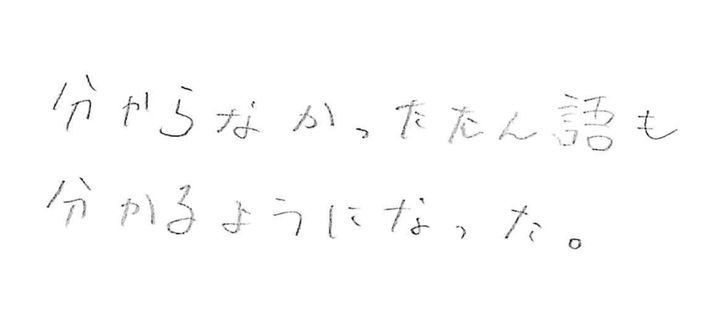 分からなかったたん語も
分かるようになった。